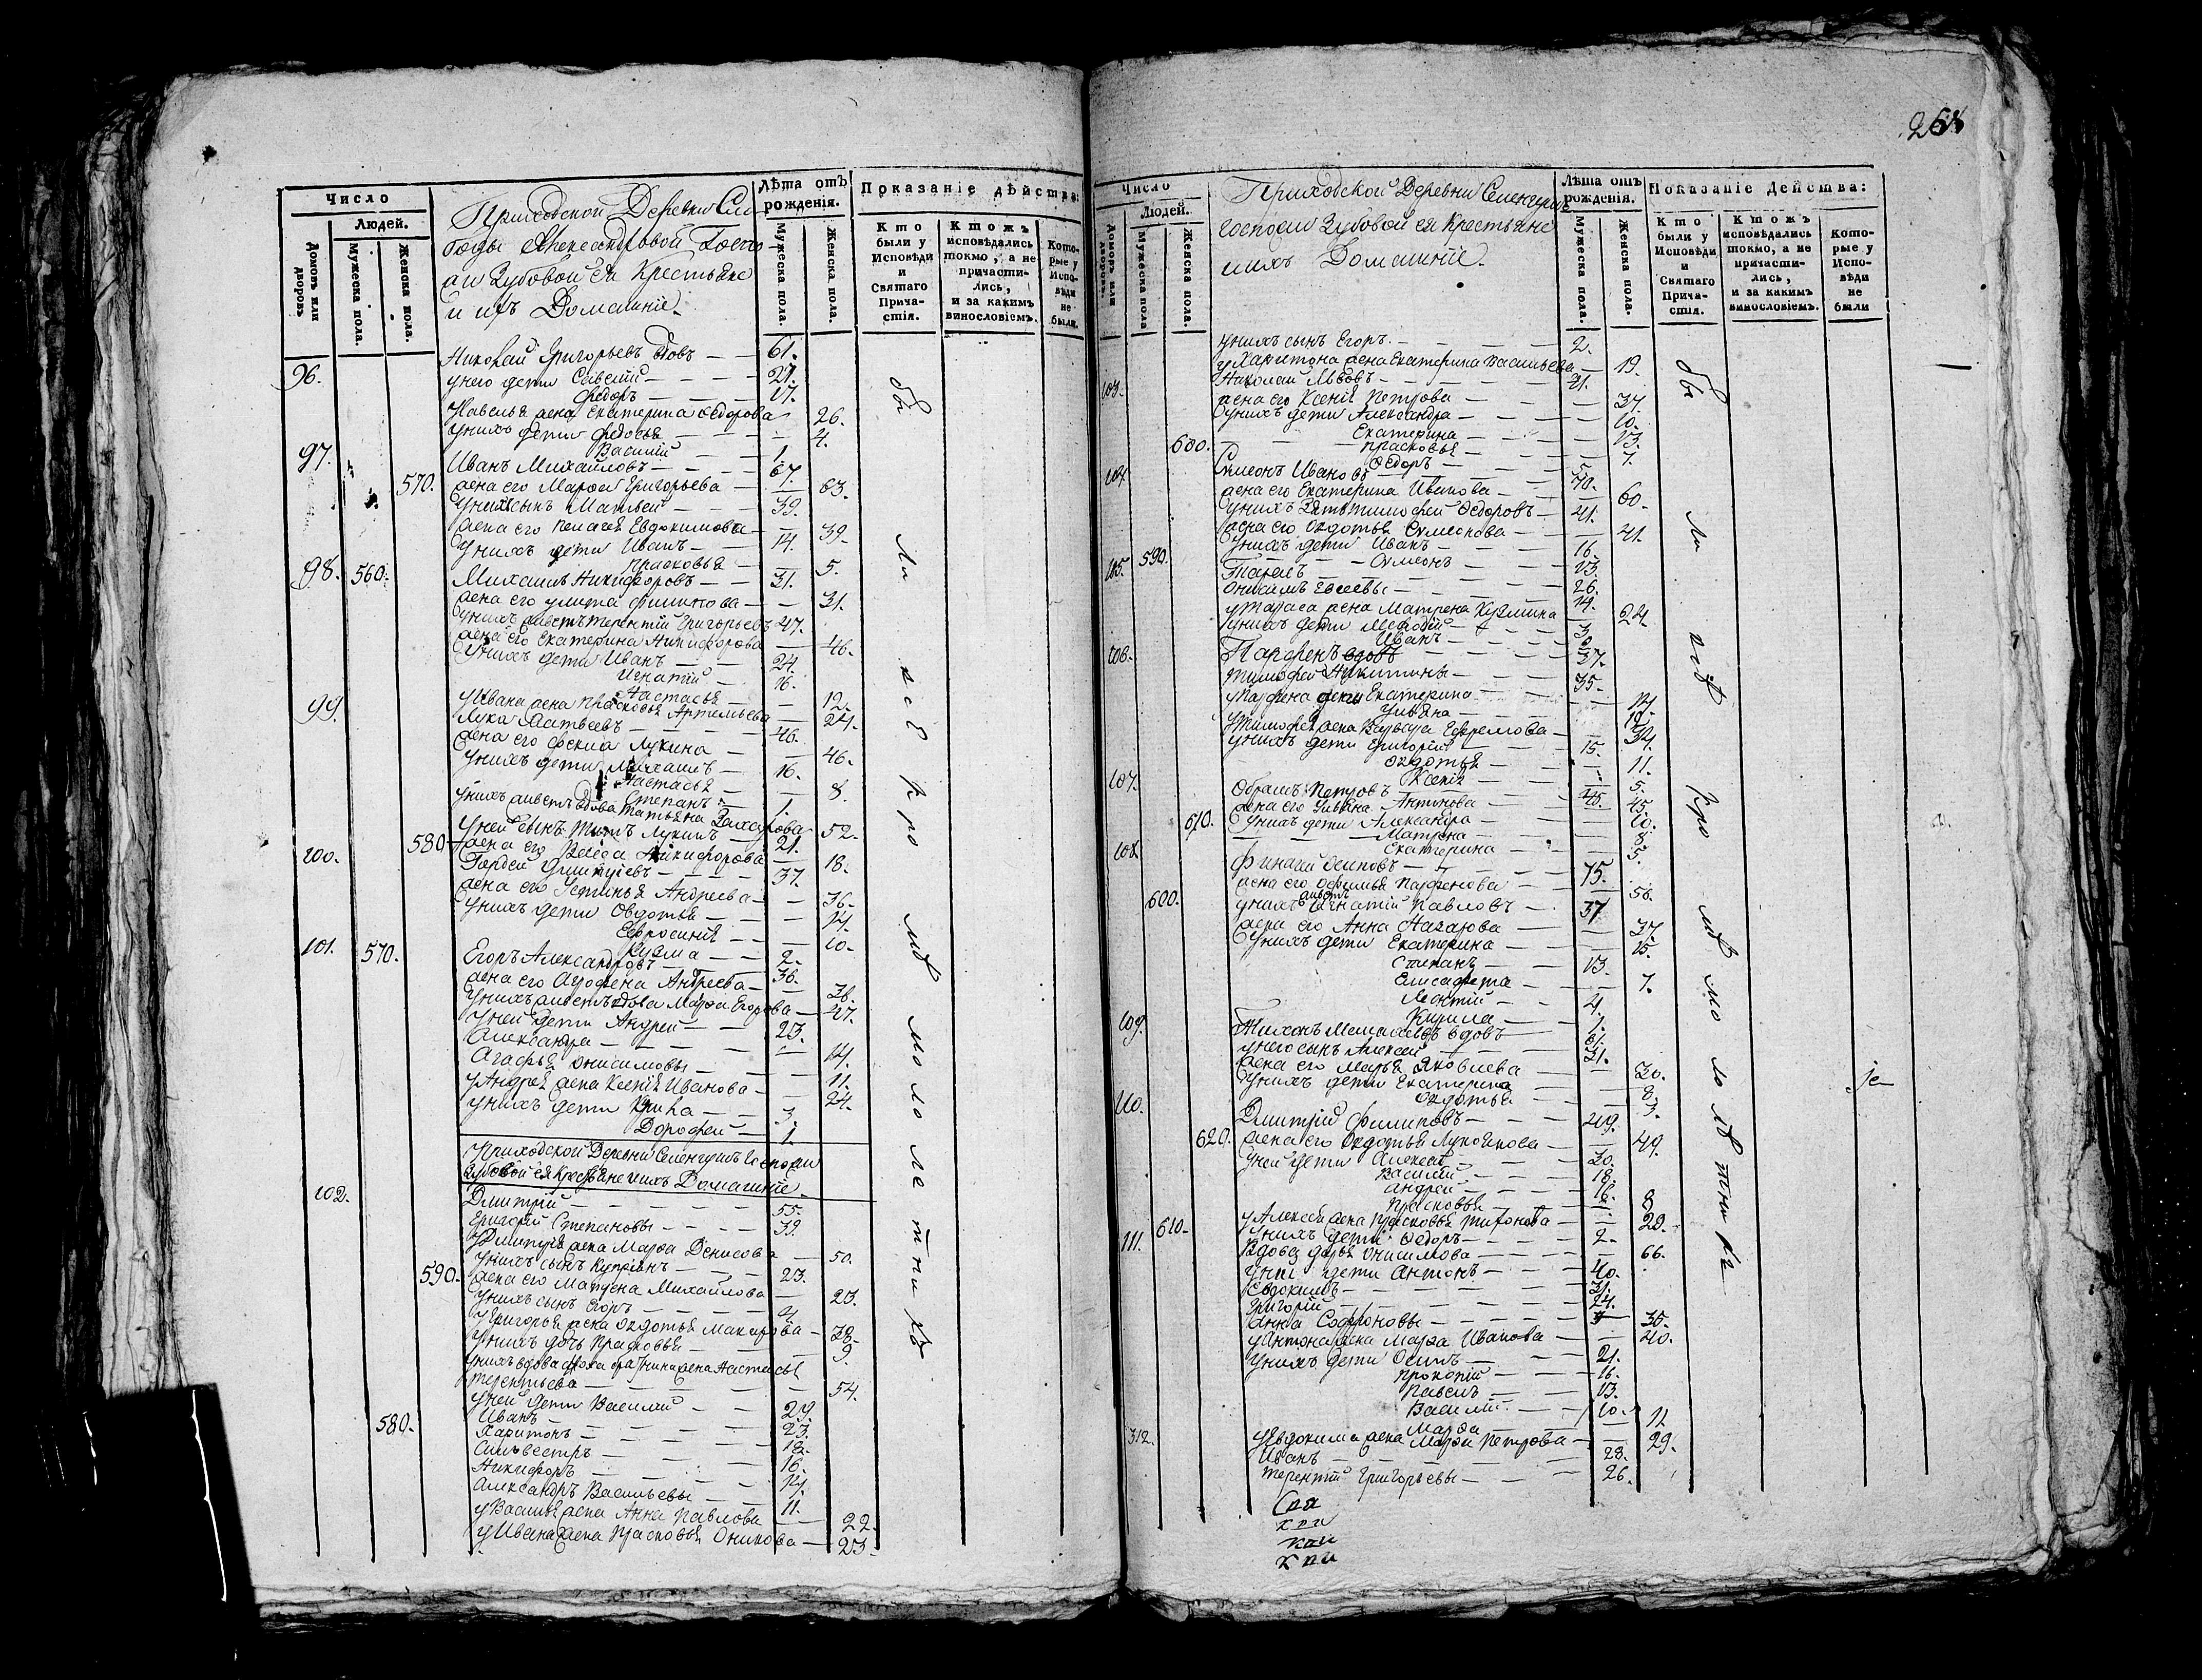 Число
Людей.
Домовъ или дворовъ
Мужеска пола.
Женска пола.
Приходской Деревни Сло
боды Александровой Госпо
жи Зубовой ея Крестьяне
и ихъ Домашніе
Лѣта отъ рожденія.
Мужеска пола.
Женска пола.
Показаніе дѣйства:
Кто были у Исповѣди и Святаго Причастія.
Ктожъ исповѣдались токмо, а не причастились, и за какимъ винословіемъ.
Которые у Исповѣди не были.
96. Николай Григорьевъ вдовъ — — 61.
у него дети Савелій — — — 27.
Федоръ — — — 17.
у Савелья жена Екатерина Федорова 26.
у нихъ дети Федосья — — — 4.
Василій — — 1.
97. Иванъ Михайловъ — — — 67.
570. жена его Марфа Григорьева — — 63.
у нихъ сынъ Матвей — — 39.
жена его Пелагея Евдокимова — 39.
у нихъ дети Иванъ — — 14.
Прасковья — 5.
98. 560. Михаилъ Никифоровъ — — 31.
жена его Улита Филипова — — 31.
у нихъ живетъ Терентій Григорьевъ 47.
жена его Екатерина Никифорова — 46.
у нихъ дети Иванъ — — 24.
Игнатій — 16.
Настасья — — 12.
у Ивана жена Прасковья Артемьева — 24.
99. Лука Матвеевъ — — — — 46.
жена его Фекла Лукина — — 46.
у нихъ дети Михаилъ — 16.
Настасья — — 8.
Степанъ — 1.
у нихъ живетъ вдова Татьяна Захарова 52.
у ней сынъ Титъ Лукинъ — 21.
580 жена его Васса Никифорова — 18.
100. Гордей Дмитріевъ — — — 37.
жена его Устинья Андреева — — 36.
у нихъ дети Овдотья — — — 14.
Евфросинія — — — 10.
Кузма — — 2.
101. 570. Егоръ Александровъ — — 36.
жена его Агрофена Андреева — 36.
у нихъ живетъ вдова Марфа Егорова — 47.
у ней дети Андрей — — 23.
Александра — — — — 14.
Агафья Онисимовы — — — 11.
у Андрея жена Ксенія Иванова — 24.
у нихъ дети — — 3.
Дорофей — 1
Приходской Деревни Селенгушъ Госпожи
Зубовой ея Крестьяне и ихъ Домашніе
102. Дмитрій — — — — — 55.
Григорій Степановы — — — — 39.
у Дмитрія жена Марфа Денисова — 50.
у нихъ сынъ Купріянъ — — — 23.
590. жена его Матрена Михайлова — 23.
у нихъ сынъ Егоръ — — — — 4.
у Григорья жена Овдотья Макарова — 38.
у нихъ дочь Прасковья — — 9.
у нихъ вдова жена Настасья
Терентьева — — — — — 54.
у ней дети Василій — — 29.
580. Иванъ — — — — — 23.
Харитонъ — — — — 18.
Сильвестръ — — — — 16.
Никифоръ — — — — 14.
Александръ Васильевы — — 11.
у Василья жена Анна Павлова — 22.
у Ивана жена Прасковья Оникова — 23.
бы ли все кро мѣ мо ло ле тни хъ
268
Число
Людей.
Домовъ или дворовъ.
Мужеска пола
Женска пола.
Приходской Деревни Селенгушъ
госпожи Зубовой ея Крестьяне
и ихъ Домашніе
Лѣта отъ рожденія.
Мужеска пола.
Женска пола.
Показаніе Действа:
Кто были у Исповѣди и Святаго Причастія.
Ктожъ исповѣдались токмо, а не причастились, и за какимъ винословіемъ.
Которые у Исповѣди не были
у нихъ сынъ Егоръ. — — — — 2.
у Харитона жена Екатерина Васильева — 19.
103. Николай Львовъ — — — — 41.
жена его Ксенія Петрова — — — 37.
у нихъ дети Александра — — — 10.
Екатерина — — — — 13.
600. Прасковья — — — 7.
Федоръ — — —
104. Симеонъ Ивановъ — — — 70.
жена его Екатерина Иванова — — 60.
у нихъ зять Тимофей Федоровъ — 41.
жена его Овдотья Симеонова — — 41.
у нихъ дети Иванъ — — — 16.
590. Симеонъ — — — 13.
105. Тарасъ — — — — 26.
Онисимъ Евсеевы — — — 14.
у Тараса жена Матрена Кузмина — 24.
у нихъ дети Мефодій — — — 3.
Иванъ — — —
106. Парфенъ вдовъ — — — 37.
Тимофей Никитины — — — 35.
у Парфена дети Екатерина — — 14.
Ульяна — — — 12.
у Тимофея жена Варвара Ефремова — 34.
у нихъ дети Григорій — — 15.
Овдотья — — — 11.
Ксенія — — — 5.
107. Обрамъ Петровъ — — — 45.
жена его Ульяна Антонова — — 45.
610. у нихъ дети Александра — — — 10.
Матрена — — — 8.
Екатерина — — — 5.
108. Финагей Осиповъ — — — 75.
жена его Офимья Парфенова — — 56.
600. у нихъ живетъ Игнатій Павловъ — 37
жена его Анна Назарова — — 37.
у нихъ дети Екатерина — — — 15.
Степанъ — — 13.
Елисафета — — — 7.
Леонтій — — 4.
Кирила — — 1.
109. Тихонъ вдовъ — 61.
у него сынъ Алексей — — 31.
жена его Марья Яковлева — — 30.
у нихъ дети Екатерина — — — 8.
Овдотья — — — 3.
110. Дмитрій Филиповъ — — — 49.
620. жена его Овдотья Лукоянова — — 49.
у ней дети Алексей — — — 20.
Василій — — — 18.
Андрей — — — 16.
Прасковья — — — 8
у Алексея жена Прасковья Тихонова — 20.
610. у нихъ дети Федоръ — — — 2.
111. Вдова Дарья Онисимова — — — 66.
у ней дети Антонъ — — — 40.
Евдокимъ — — — — 31.
Григорій — — — — — 24.
Анна Софроновы — — — — 35.
у Антона жена Марфа Иванова — — 40.
у нихъ дети Осипъ — — — 21.
Прокопій — — 16.
Павелъ — — 13.
Василій — — 10.
Марфа — — — 11
у Евдокима жена Марфа Петрова — 29.
312. Иванъ — — — — — 28.
Терентій Григорьевы — — — 26.
бы ли всѣ кро мѣ мо ло лѣ тни хъ